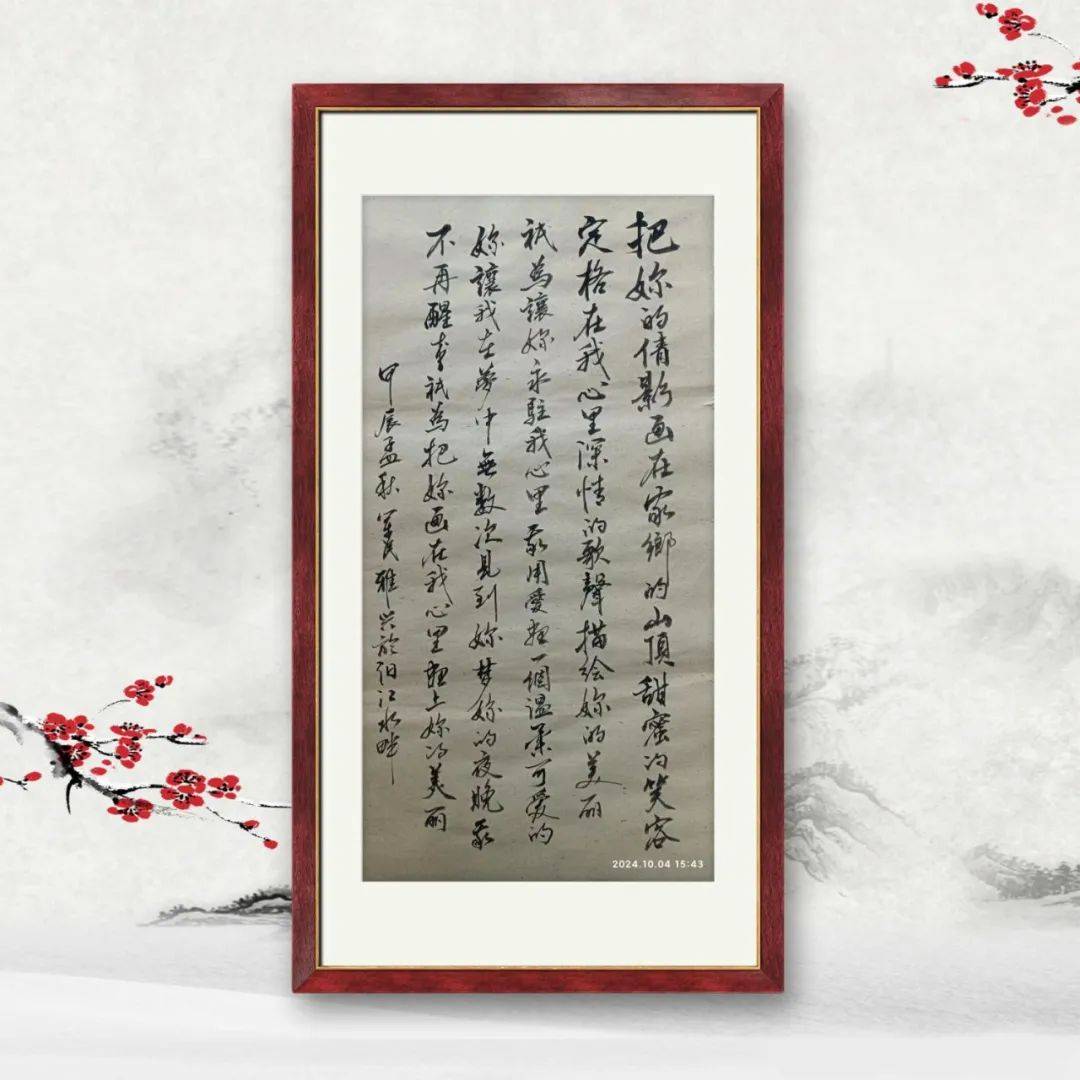 把妳的倩影画在家鄉的山頂甜蜜的笑容
定格在我心里深情的歌聲描绘妳的美丽
祇為讓妳永駐我心里我用愛畫一個温柔可愛的
妳讓我在夢中無数次見到妳梦妳的夜晚我
不再醒来祇為把妳画在我心里画上妳的美丽
甲辰孟秋 雅兴於汨江水畔
2024.10.04 15:43